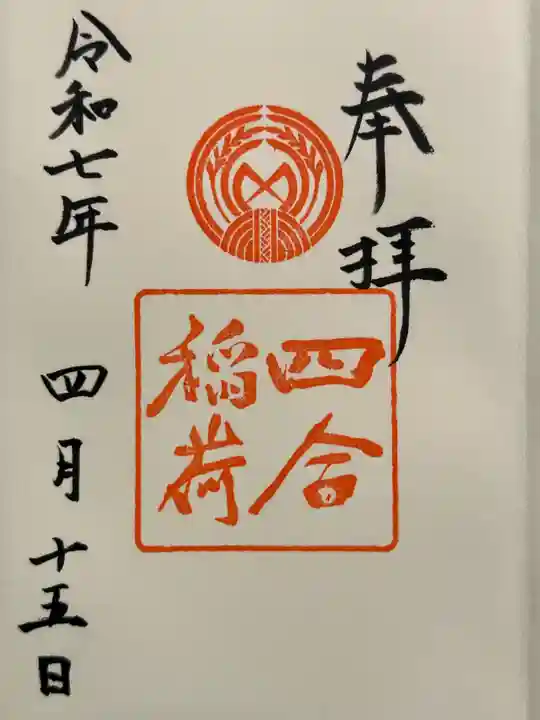 奉拝
四合
稲荷
令和七年 四月十五日